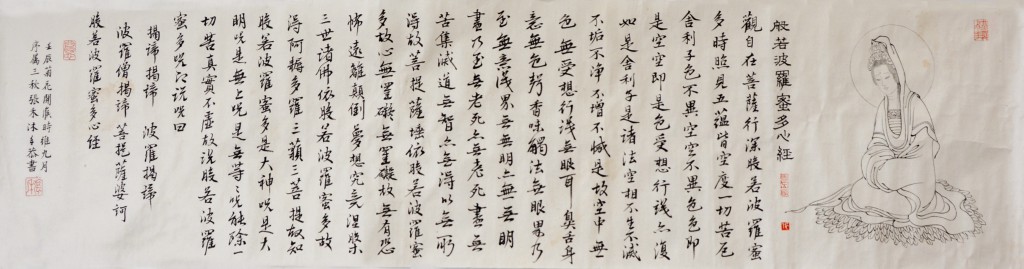 般若波羅蜜多心經
觀自在菩薩行深般若波羅蜜
多時照見五蘊皆空度一切苦厄
舍利子色不異空空不異色色即
是空空即是色受想行識亦復
如是舍利子是諸法空相不生不滅
不垢不淨不增不減是故空中無
色無受想行識無眼耳鼻舌身
意無色聲香味觸法無眼界乃
至無意識界無無明亦無無明
盡乃至無老死亦無老死盡無
苦集滅道無智亦無得以無所
得故菩提薩埵依般若波羅蜜
多故心無罣礙無罣礙故無有恐
怖遠離顛倒夢想究竟涅槃
三世諸佛依般若波羅蜜多故
得阿耨多羅三藐三菩提故知
般若波羅蜜多是大神咒是大
明咒是無上咒是無等〻咒能除一
切苦真實不虛故說般若波羅
蜜多咒即說咒曰
揭諦揭諦 波羅揭諦
波羅僧揭諦 菩提薩婆訶
般若波羅蜜多心經
壬辰菊花開歲時維九月
序屬三秋張沐手恭書